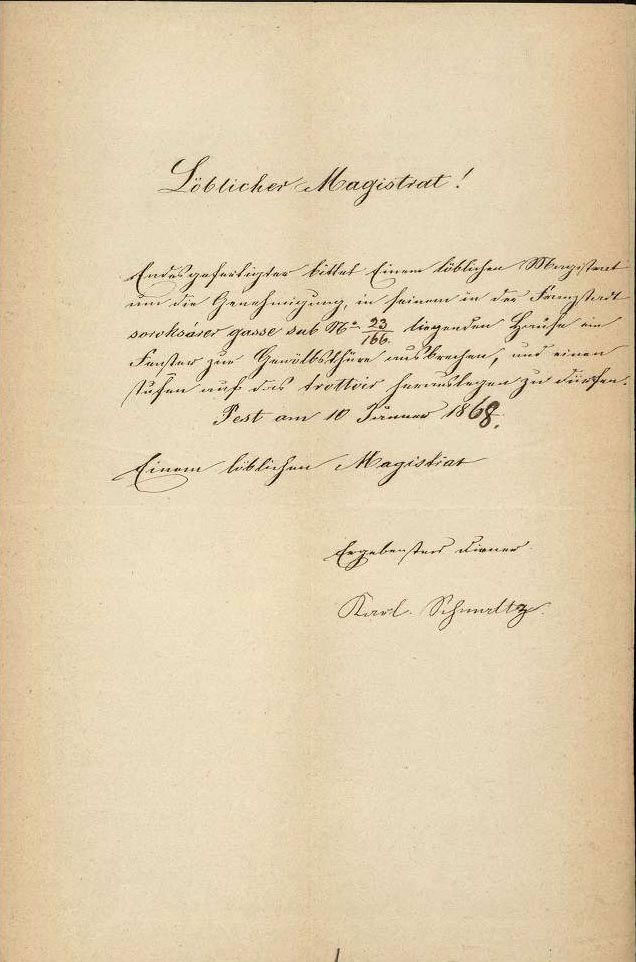 Löblicher Magistrat!
Endesgefertigter bittet Einem löblichen Magistrat
um die Genehmigung, in seinem in der Franzstadt
soroksárer gasse sub No. 23/166 liegenden Hause ein
Fenster zur Gewölbsthüre ausbrechen, und einen
stufen auf das trottoir herauslegen zu dürfen.
Pest am 10 Jänner 1868.
Einem löblichen Magistrat
Ergebenster diener
Karl Schmaltz